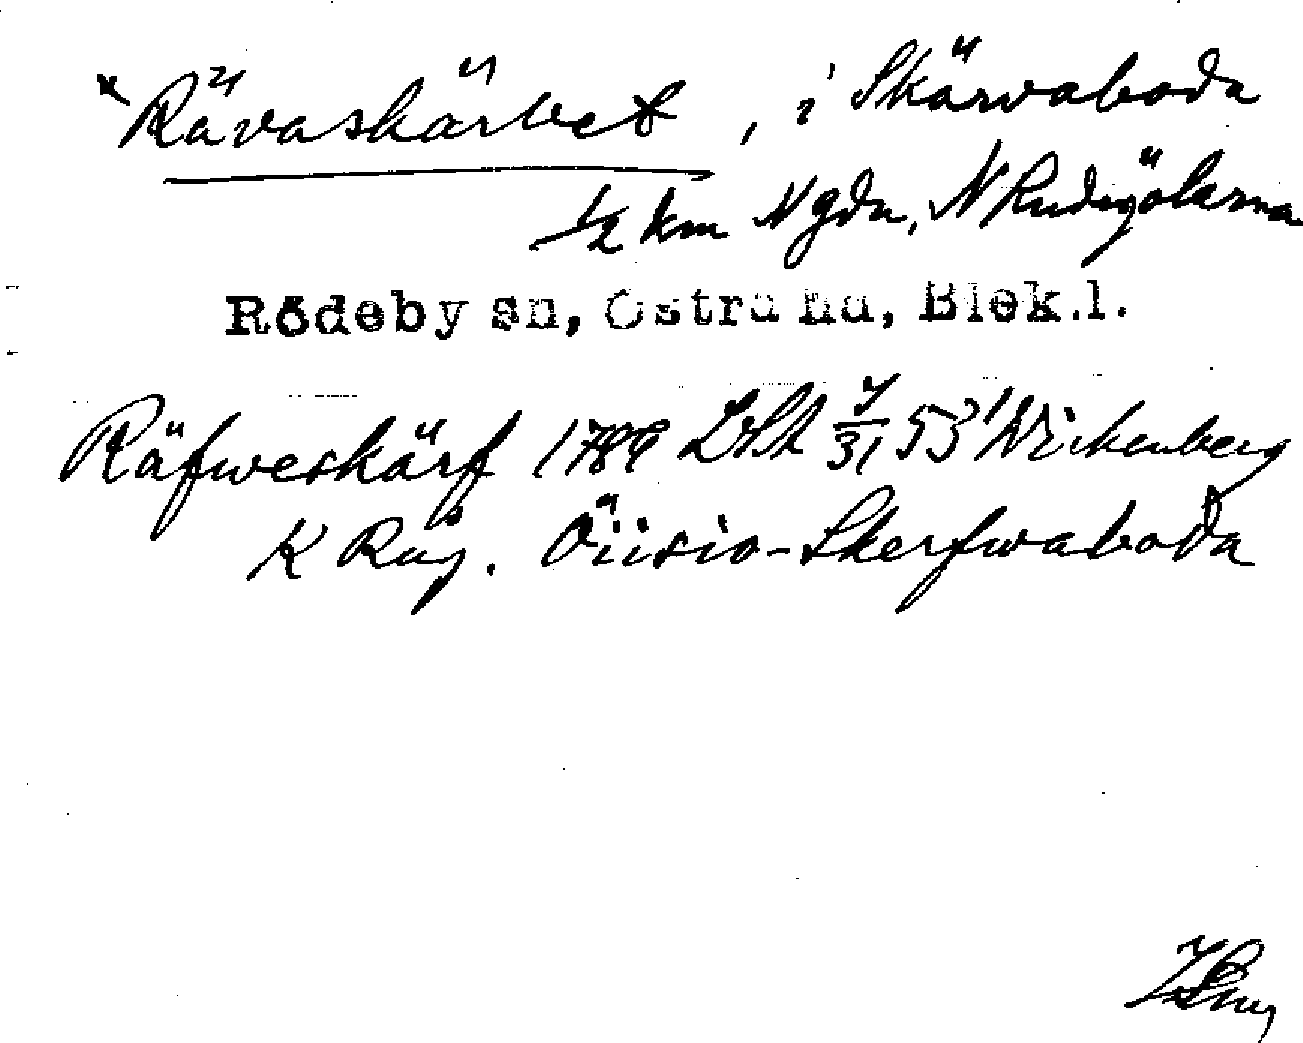 * Rävaskärvet, i Skärvaboda
1/2 km N gdn, N Rudegölarna
Rödeby sn, Östra hd, Blek.l.
Räfweskärf 1789 LSA 7/31 53 Wickenberg
K Rug. Öiisio-Skerfwaboda